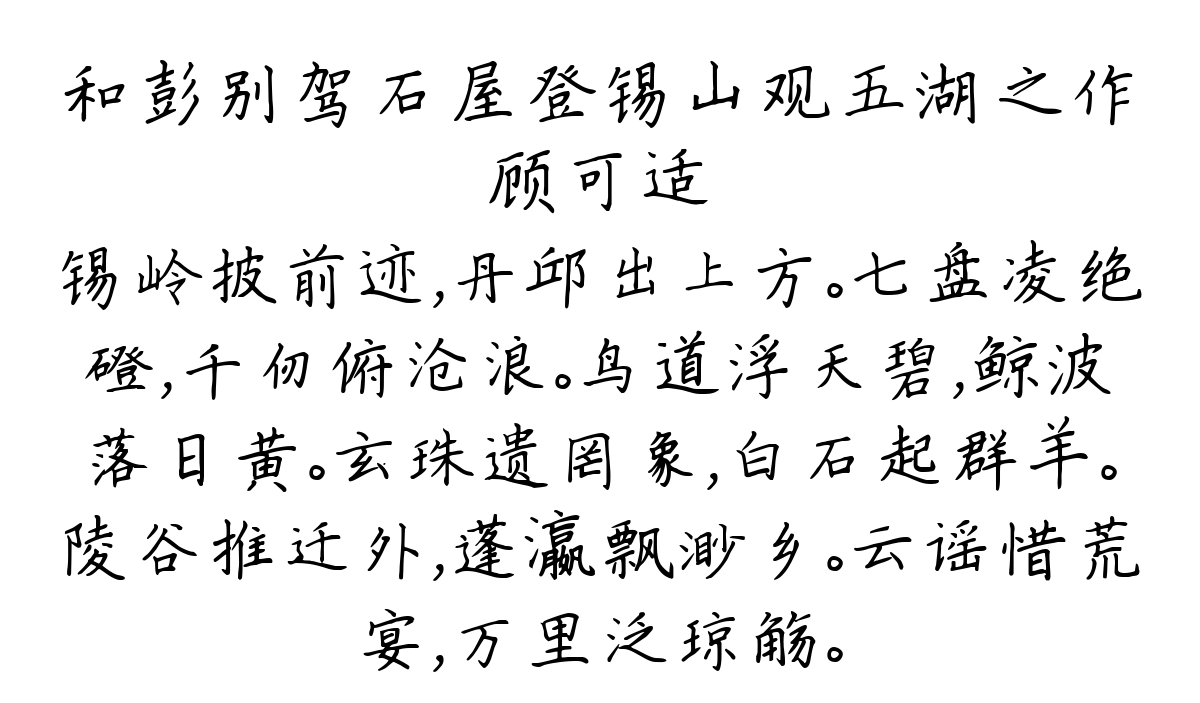 和彭别驾石屋登锡山观五湖之作
顾可适
锡岭披前迹,丹邱出上方。七盘凌绝
磴,千仞俯沧浪。鸟道浮天碧,鲸波
落日黄。玄珠遗罔象,白石起群羊。
陵谷推迁外,蓬瀛飘渺乡。云谣惜荒
宴,万里泛琼觞。